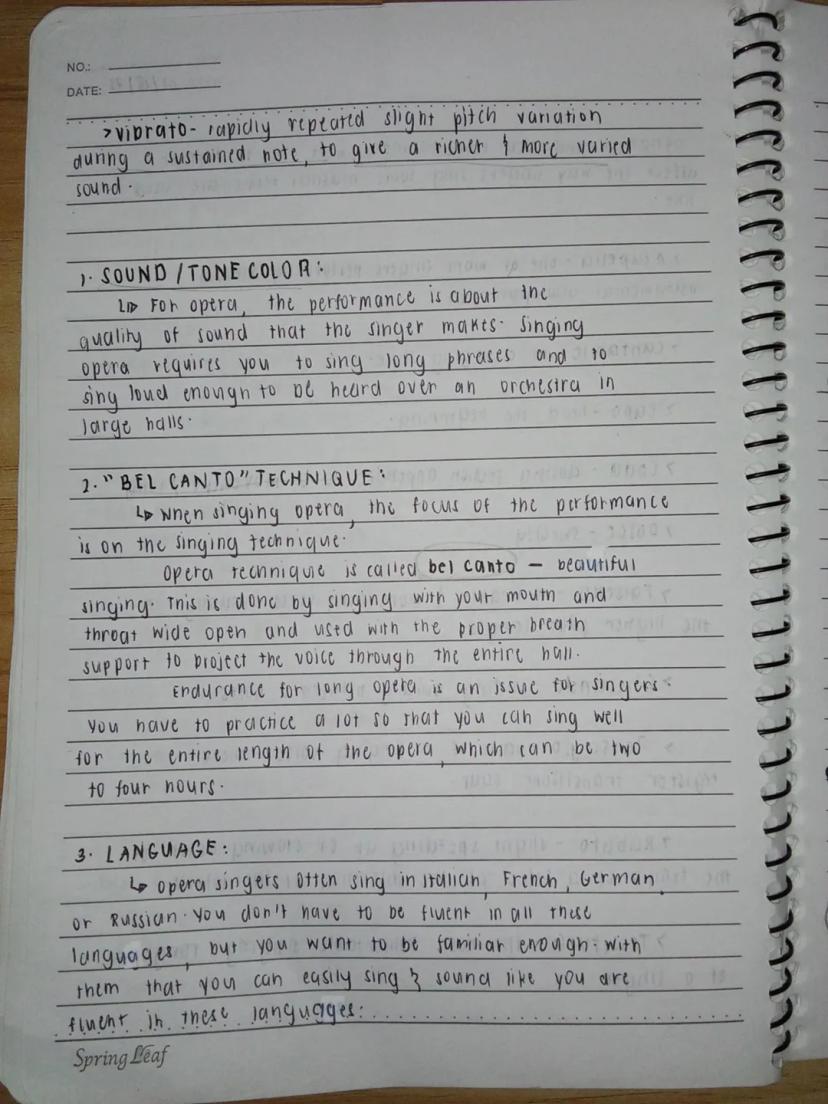 NO.:
DATE:
>vibrato- rapidly repeated slight pitch variation
during a sustained note, to give a richer & more varied
sound.
1. SOUND / TONE COLOR:
↳ For opera, the performance is about the
quality of sound that the singer makes. Singing
opera requires you to sing long phrases and to
sing loud enough to be heard over an orchestra in
large halls.
2. "BEL CANTO" TECHNIQUE:
↳ When singing opera, the focus of the performance
is on the singing technique.
Opera technique is called bel canto – beautiful
singing. This is done by singing with your mouth and
throat wide open and used with the proper breath
support to project the voice through the entire hall.
Endurance for long opera is an issue for singers.
You have to practice a lot so that you can sing well
for the entire length of the opera, which can be two
to four hours.
3. LANGUAGE:
↳ Opera singers often sing in Italian, French, German,
or Russian. You don't have to be fluent in all these
languages, but you want to be familiar enough with
them that you can easily sing & sound like you are
fluent in these languages.
Spring Leaf